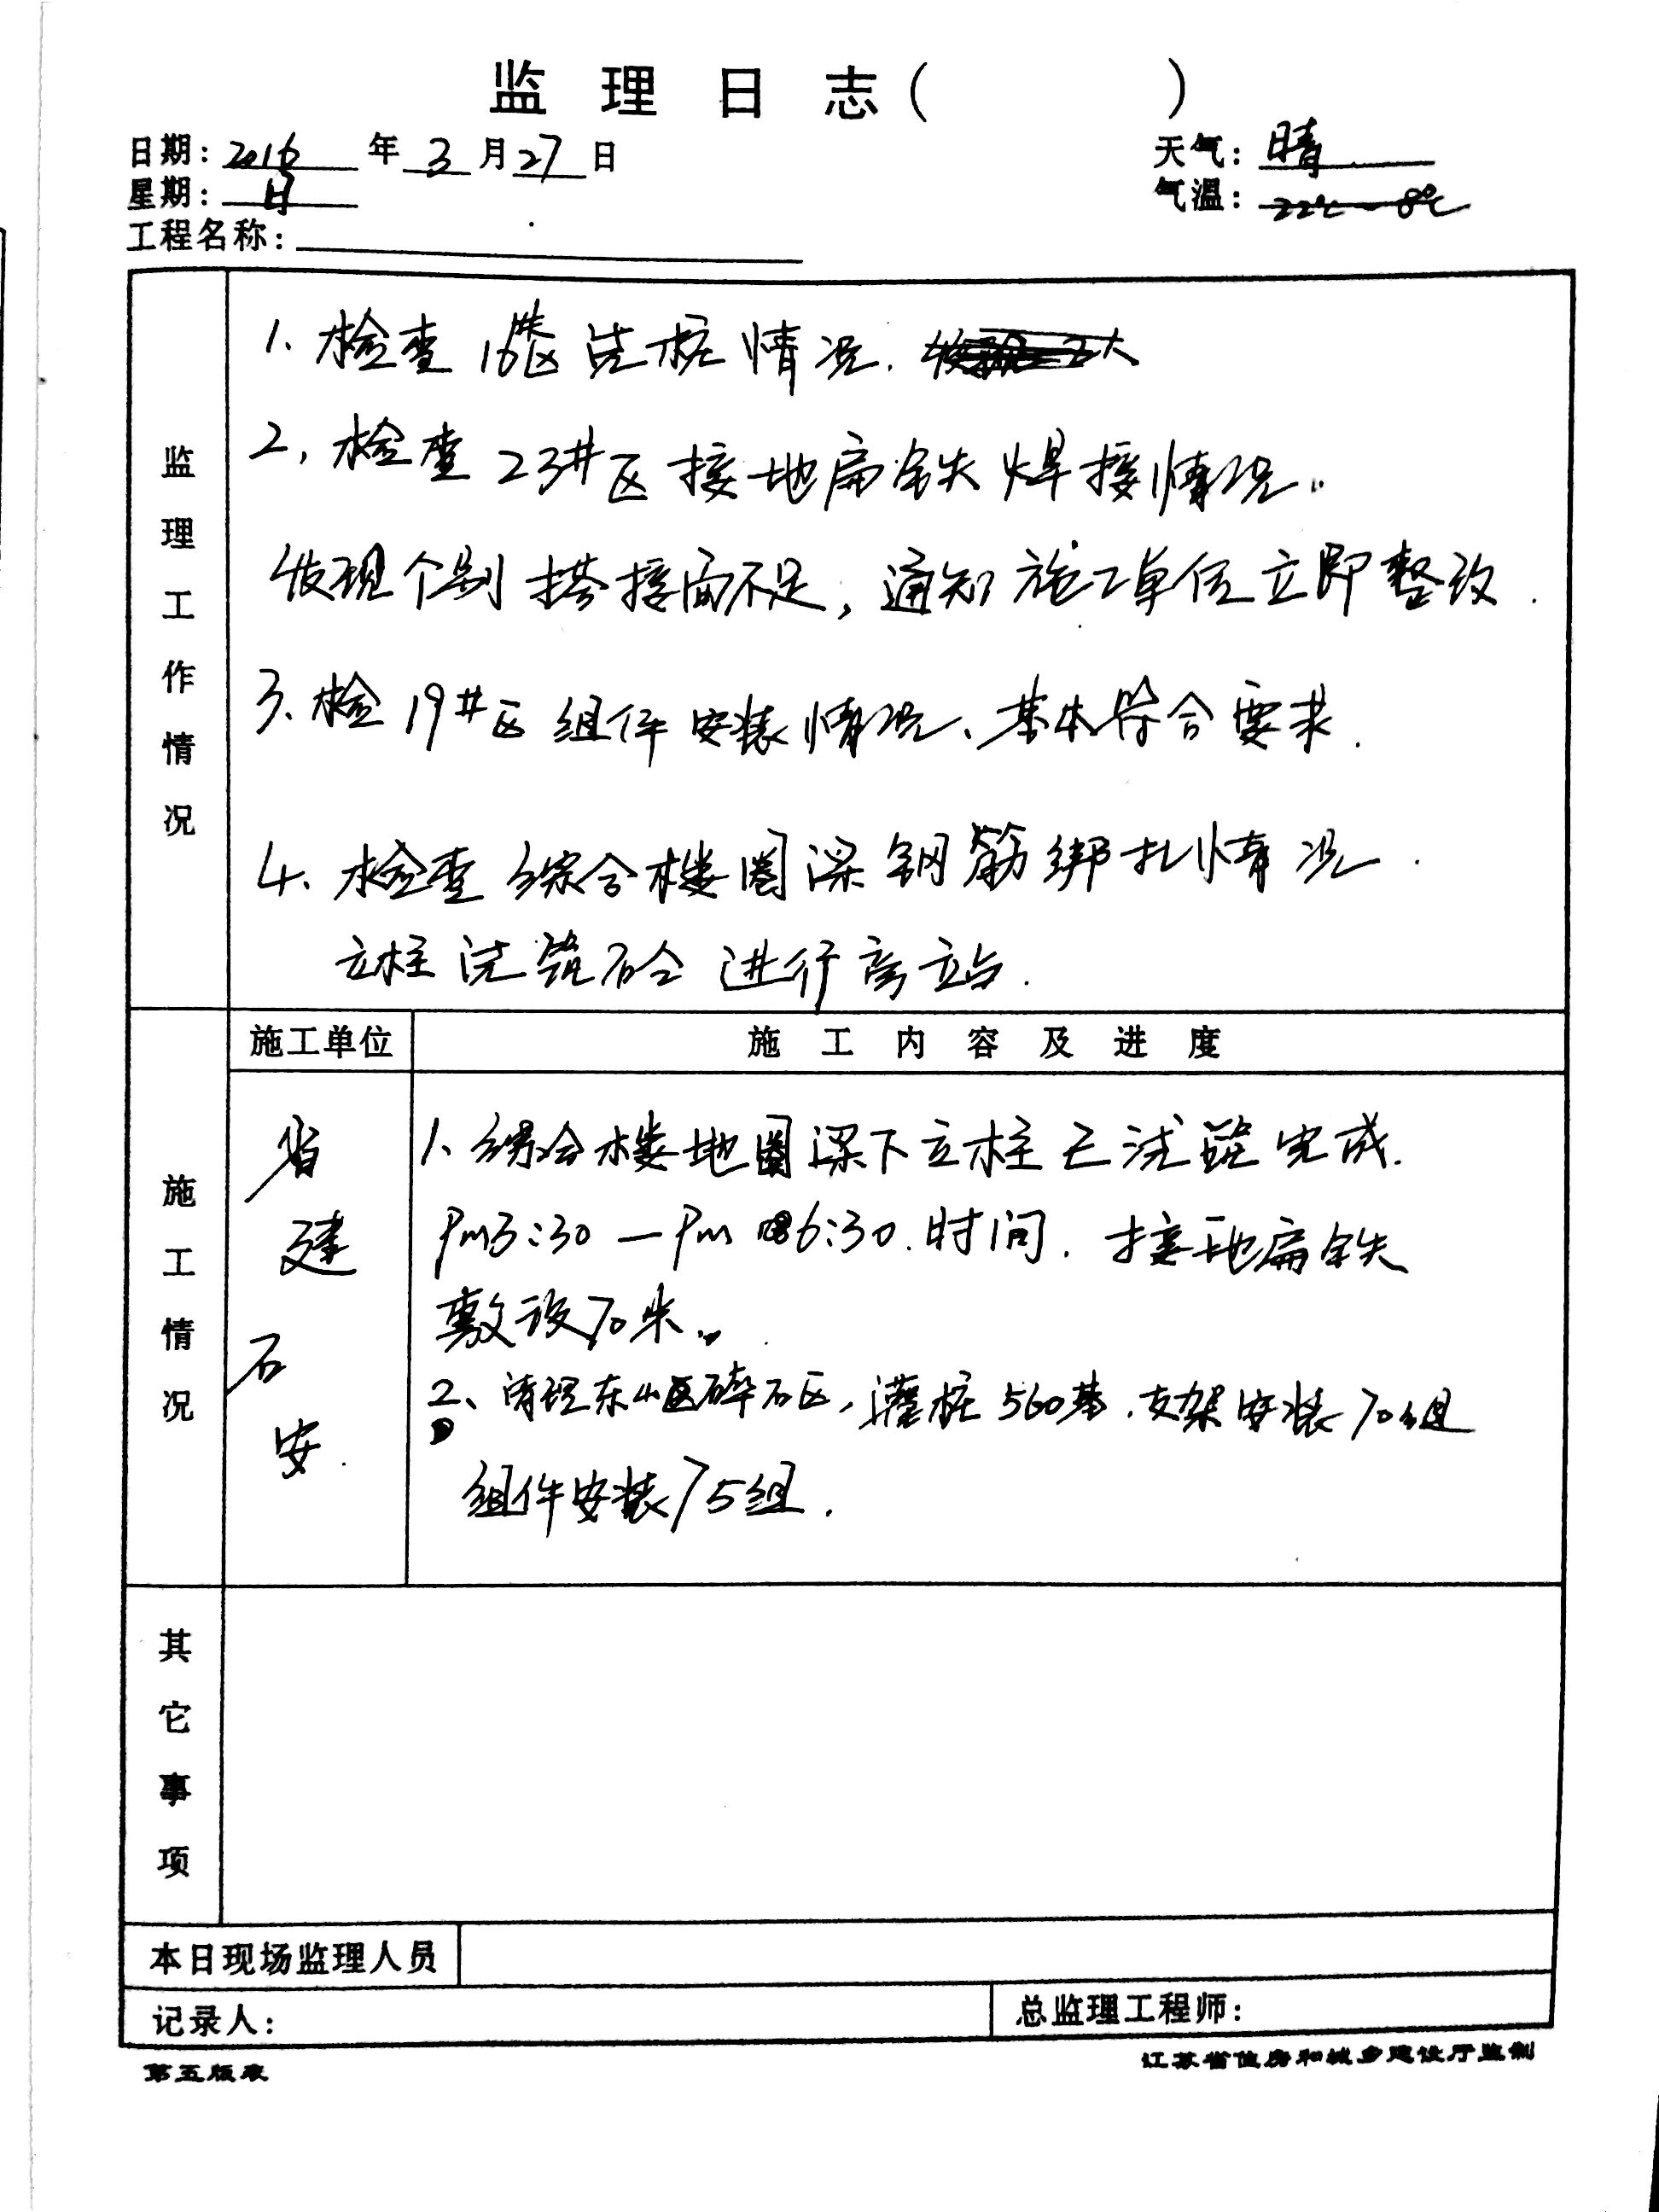 监理日志(      )
日期: 2016 年 3 月 27 日
天气: 晴
星期: 日
气温: 22℃-8℃
工程名称:
监理工作情况
1、检查16#区浇桩情况.
2、检查23#区接地扁铁焊接情况.
发现个别搭接面不足,通知施工单位立即整改.
3、检19#区组件安装情况、基本符合要求.
4、检查综合楼圈梁钢筋绑扎情况.
立柱浇筑砼进行旁站.
施工情况
施工单位
施工内容及进度
省建
石安.
1、综合楼地圈梁下立柱已浇筑完成.
Pm3:30—Pm 6:30.时间.接地扁铁
敷设70米.
2、清理东山区碎石区,灌桩560基.支架安装70组
组件安装75组.
其它事项
本日现场监理人员
记录人:
总监理工程师:
第五版表
江苏省住房和城乡建设厅监制